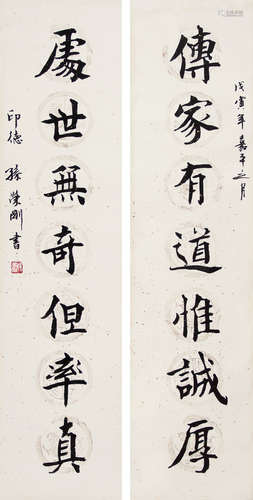 戊寅年嘉平之月
傳家有道惟誠厚
處世無奇但率真
印德 孫榮剛書